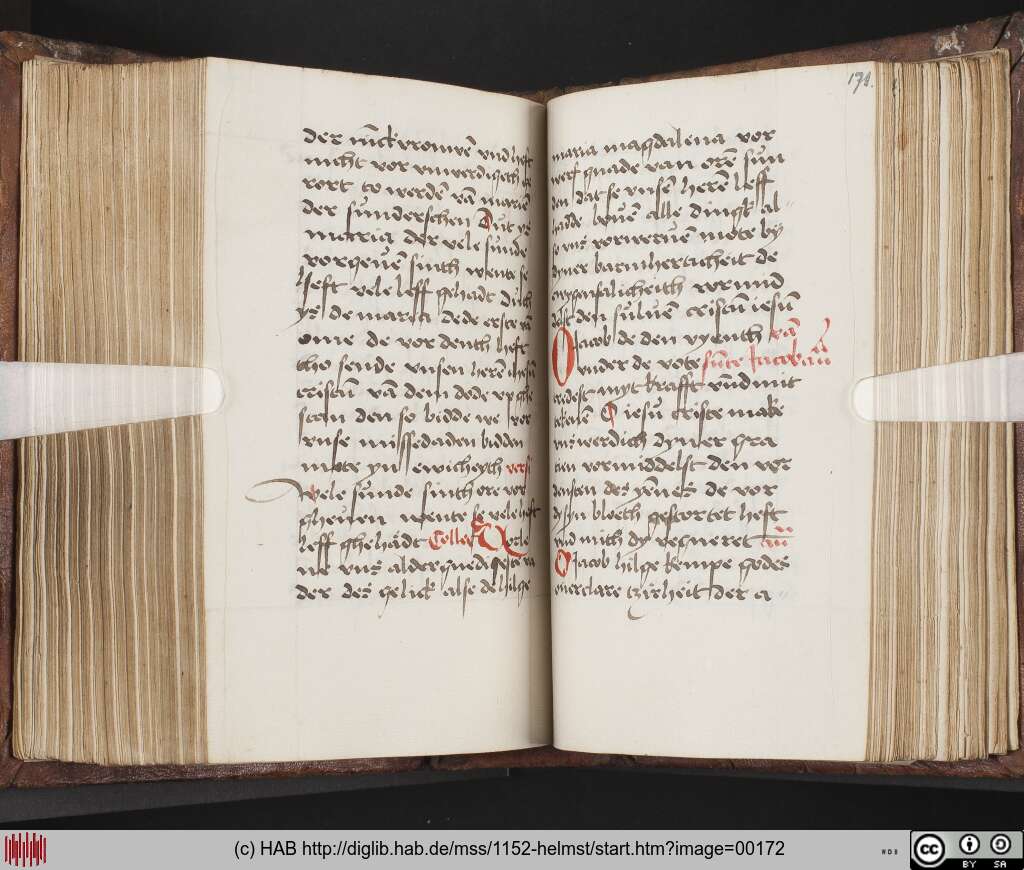 der iũckvrouwē vnd heft
nicht vor vnwerdigeth
rort to werdē vā mariē
der sunderschen Dut ys
maria der vele sunde
vorgeuē sinth wente se
heft vele leff gehadt Duth
ys de maria dede erste vā
one de vor denth heft
tho sende vnsen herē ihesū
cristū vā dem dode vp ghe
stan den so bidde we vor
vnse missedaden bidden
mote yn ewicheyth versi
Vele sunde sinth ore vor
gheuen wente se vele heft
leff ghehadt Collect Vorle
ne vns alderguedigeste va
der des gelick alse de hilge
174.
maria magdalena vor
werf gnade van orē sun
den dat se vnsē herē leff
hadde bouē alle dingk al
so vns vorweruē mote by
dyner barmherticheit de
ewygen salicheith vormid
delst den suluē cristū iesū
O Jacob de den vyenth vā
vnder de vote sūte Jacob añ
tredest myt krafft vnd mit
tekenē O iesu criste make
vns werdich dyner gra
cien vormiddelst den vor
densten des yēnes de vor
dyn bloeth gestortet heft
vnd mith dy regneret añ
O Jacob hilge kempe godes
ouerclare tzirheit der a
(c) HAB http://diglib.hab.de/mss/1152-helmst/start.htm?image=00172
WDB
cc BY SA